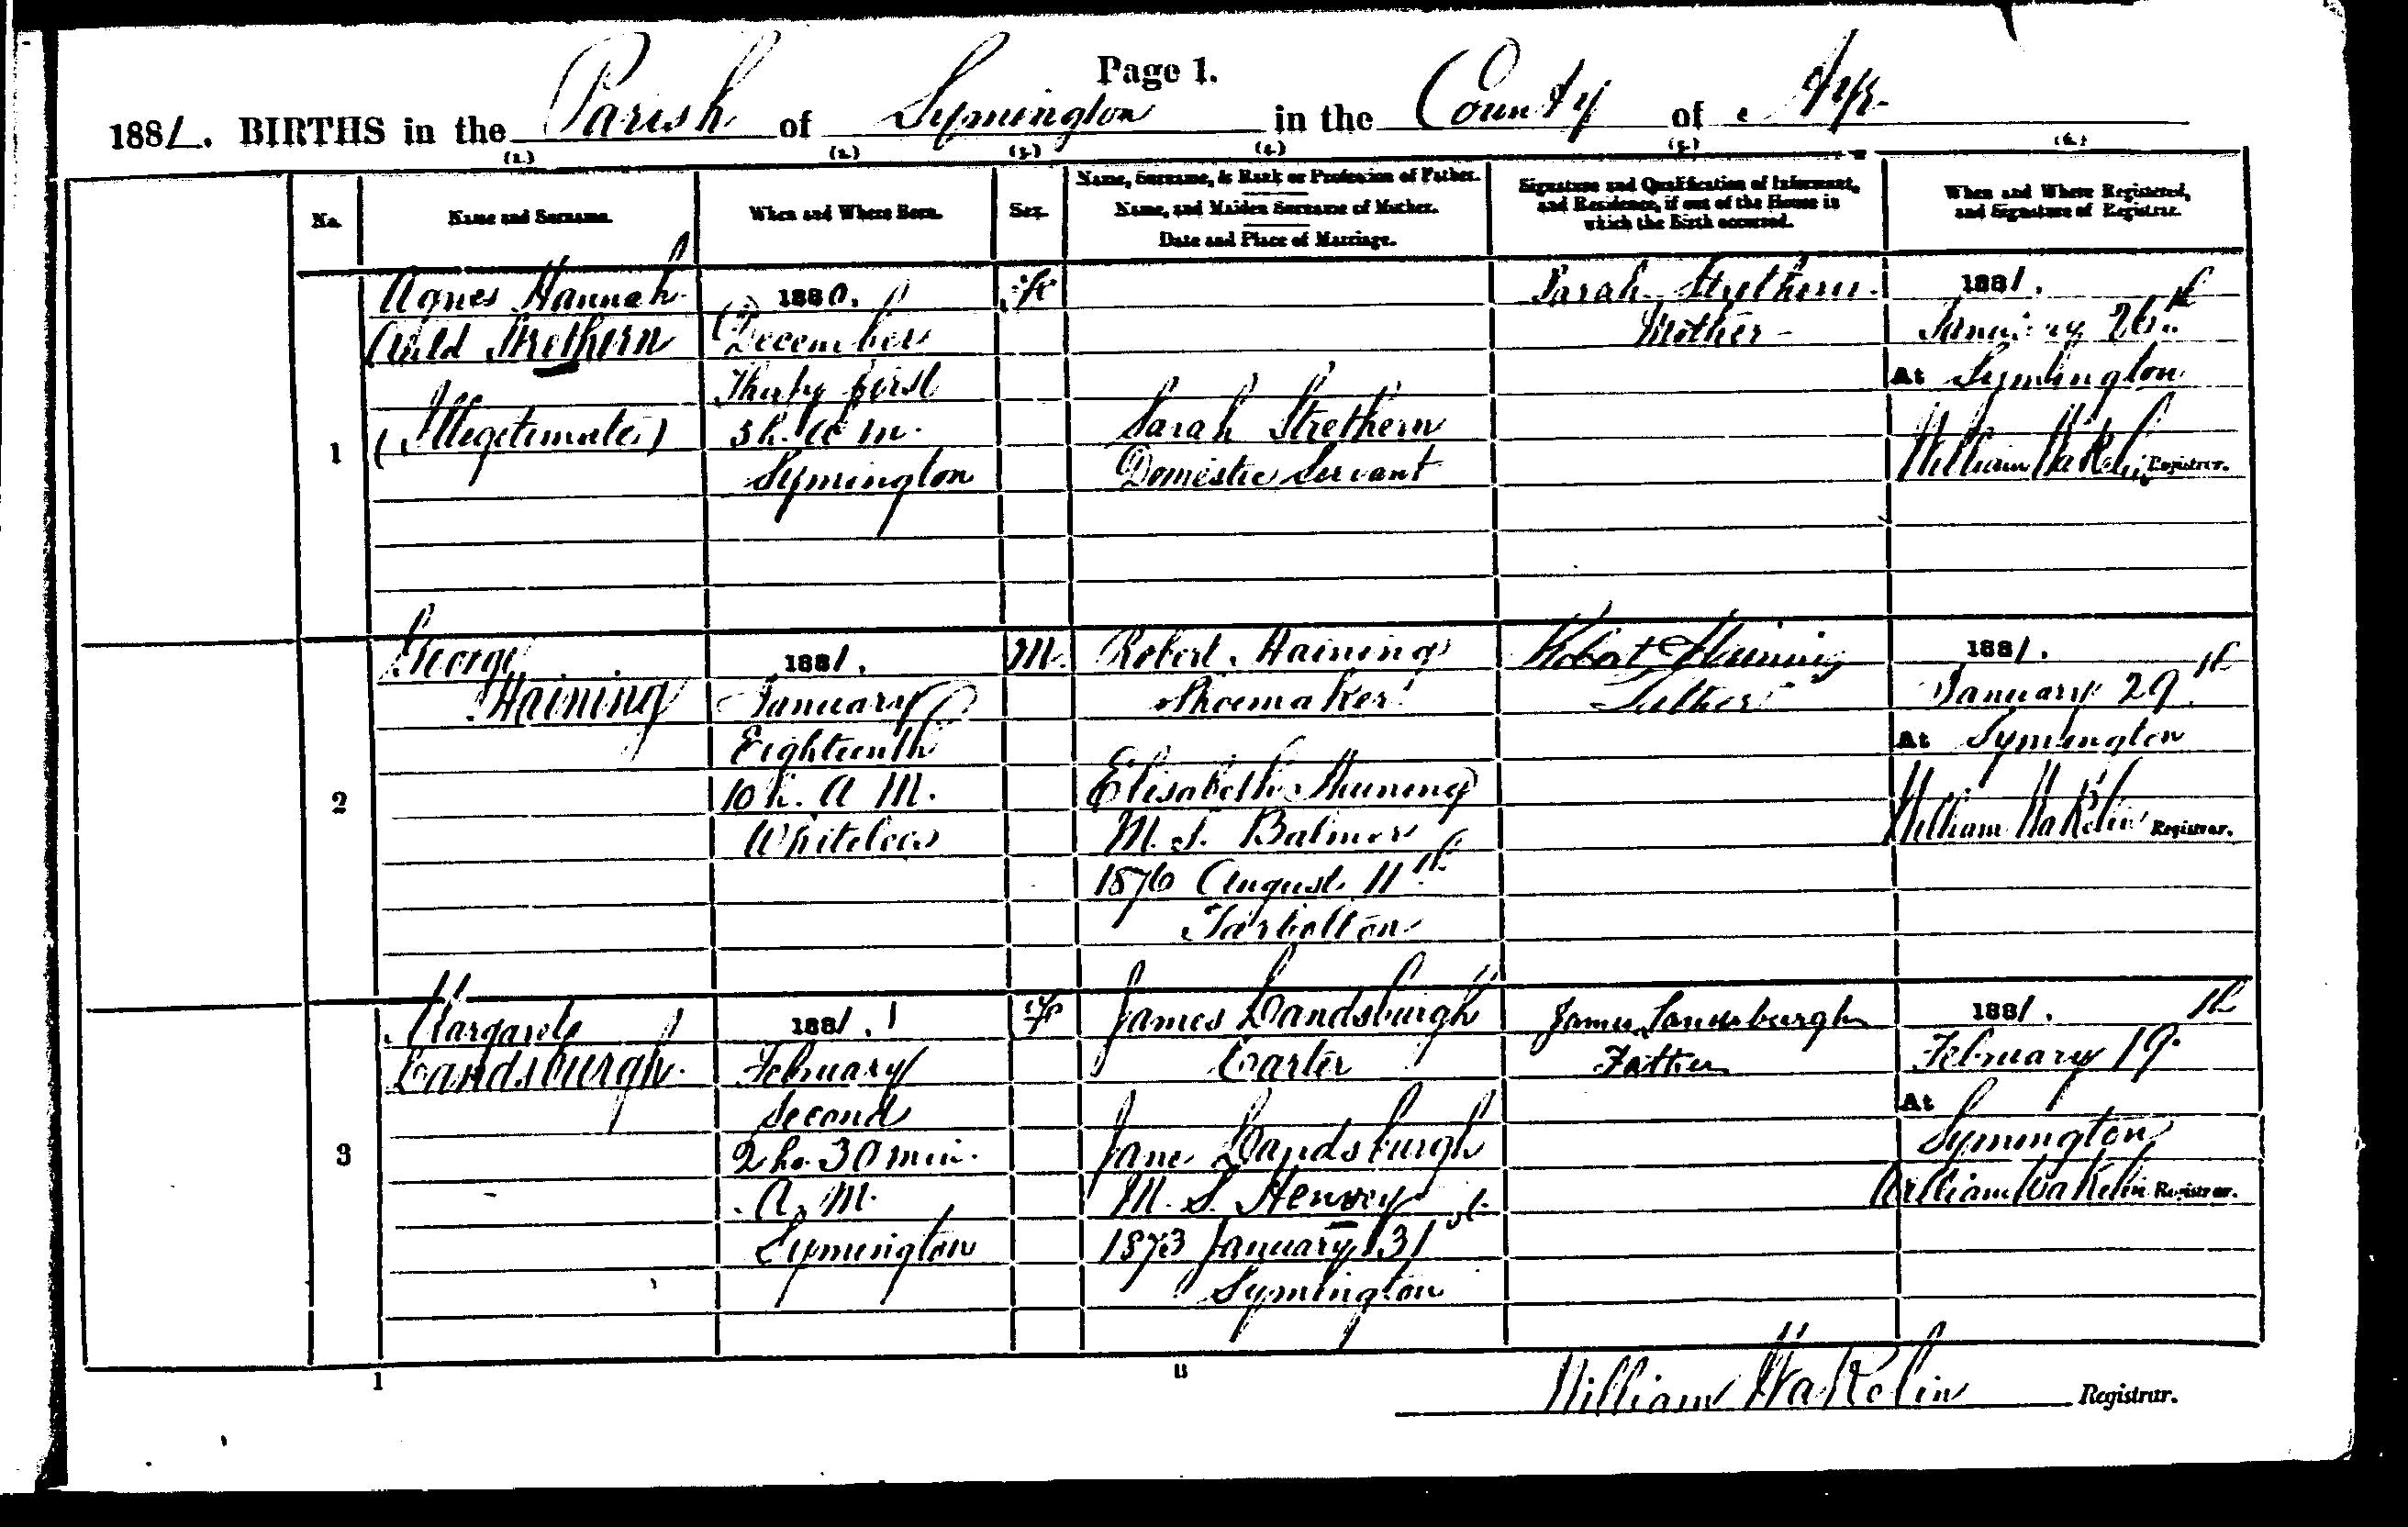 Page 1.
1881. BIRTHS in the Parish of Symington in the County of Ayr
(1.) (2.) (3.) (4.) (5.) (6.)
No.
Name and Surname.
When and Where Born.
Sex.
Name, Surname, & Rank or Profession of Father.
Name, and Maiden Surname of Mother.
Date and Place of Marriage.
Signature and Qualification of Informant,
and Residence, if out of the House in
which the Birth occurred.
When and Where Registered,
and Signature of Registrar.
1
Agnes Hannah
Auld Strethern
(Illegitimate)
1880.
December
Thirty first
5 h. A m.
Symington
F
Sarah Strethern
Domestic Servant
Sarah Strethern
Mother
1881.
January 26th
At Symington
William Wakelin Registrar.
2
George
Haining
1881.
January
Eighteenth
10 h. A M.
Whitelees
M.
Robert Haining
Shoemaker
Elisabeth Haining
M. S. Balmer
1876 August 11th
Tarbolton
Robert Haining
Father
1881.
January 29th
At Symington
William Wakelin Registrar.
3
Margaret
Landsburgh
1881.
February
Second
2 ho. 30 min.
A. M.
Symington
F
James Landsburgh
Carter
Jane Landsburgh
M. S. Hervey
1873 January 31st
Symington
James Landsburgh
Father
1881.
February 19th
At
Symington
William Wakelin Registrar.
1
B
William Wakelin Registrar.